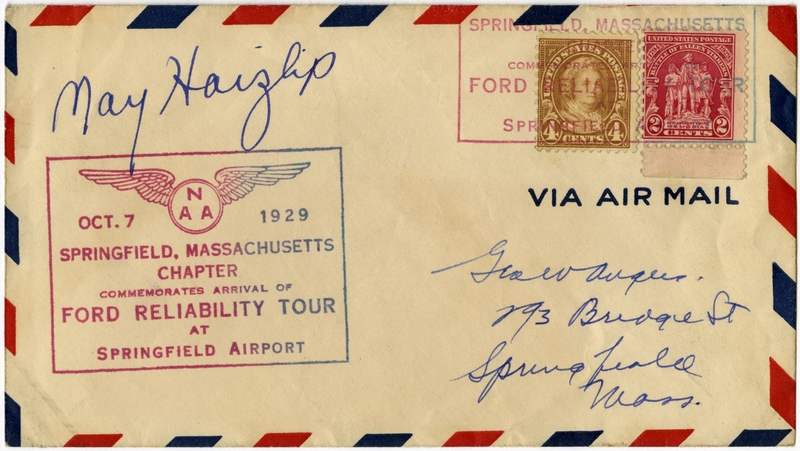 May Haizlip
SPRINGFIELD, MASSACHUSETTS
FORD RELIABILITY TOUR
SPRINGFIELD
UNITED STATES POSTAGE
4 CENTS 4
UNITED STATES POSTAGE
BATTLE OF FALLEN TIMBERS
2 CENTS 2
VIA AIR MAIL
N
A A
OCT. 7 1929
SPRINGFIELD, MASSACHUSETTS
CHAPTER
COMMEMORATES ARRIVAL OF
FORD RELIABILITY TOUR
AT
SPRINGFIELD AIRPORT
Geo W Angers.
293 Bridge St
Springfield
Mass.